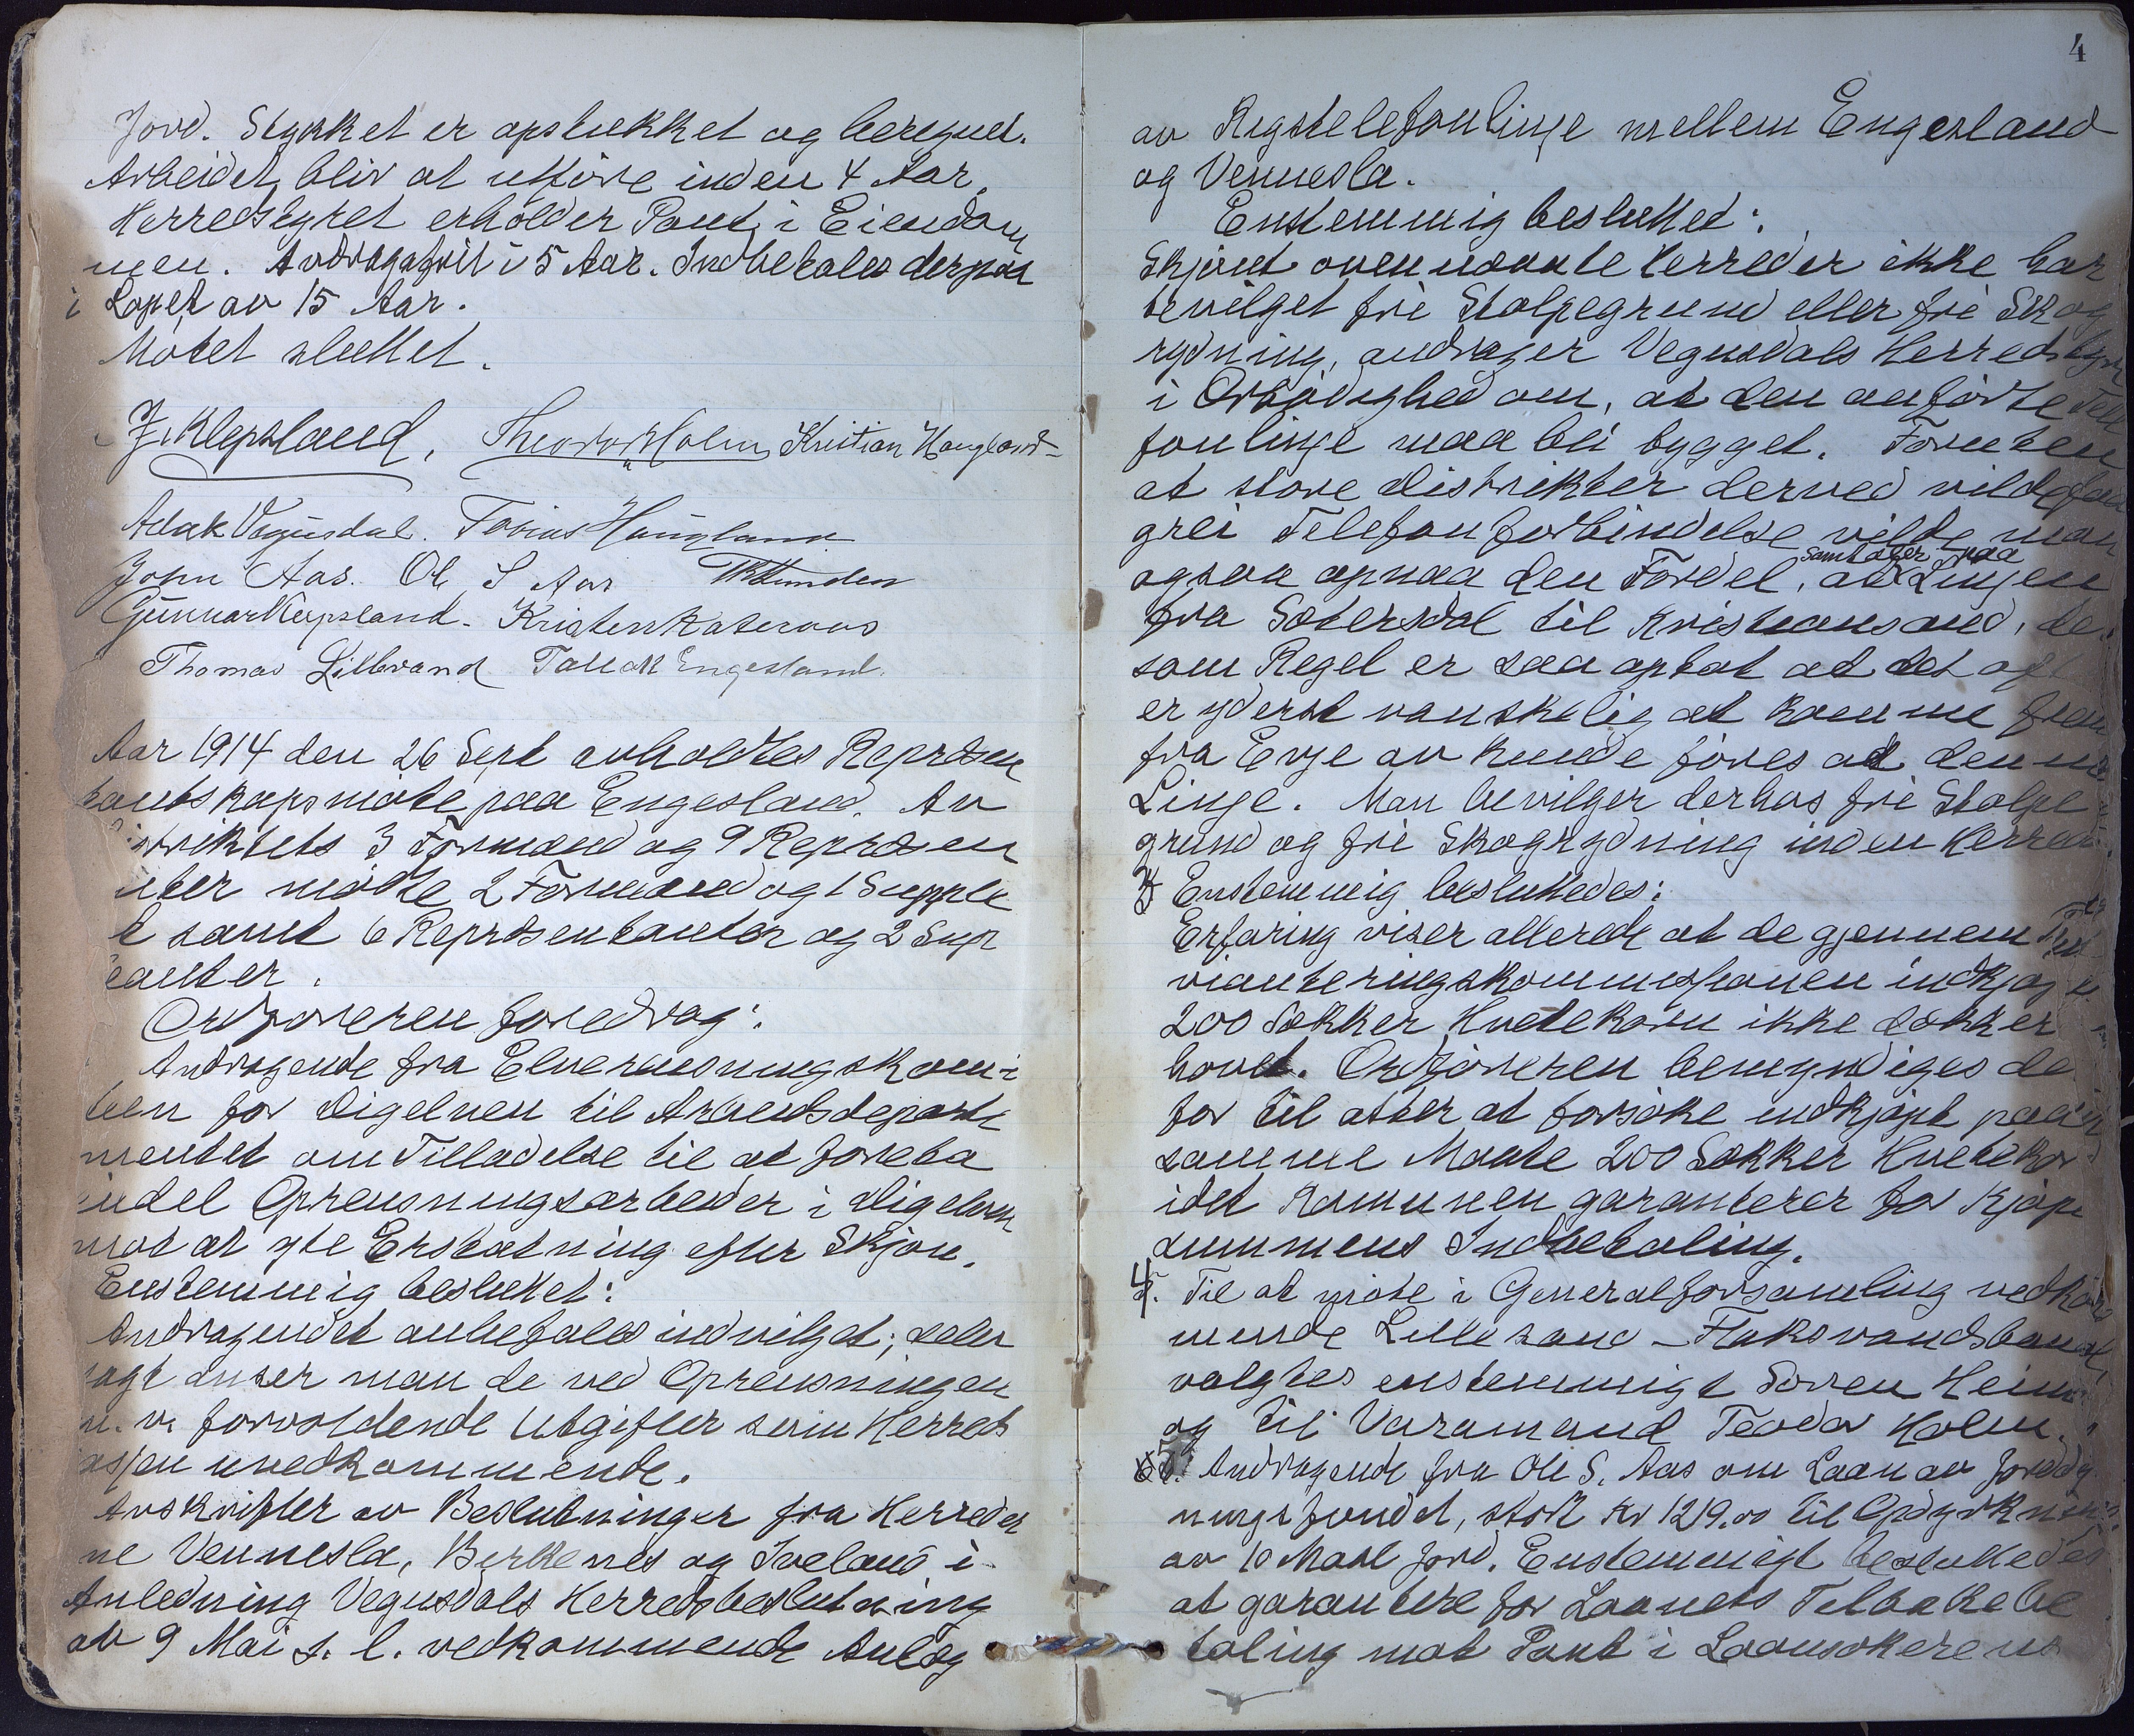 Jord. Stykket er opstukket og beregnet.
Arbeidet bliv at utföre inden 4 Aar.
Herredstyret erholder Pant i Eiendom
men. Avdragsfrit i 5 Aar. Indbetales derpaa
i Lopet av 15 Aar.
Mötet sluttet.
J. Klepsland, Theodor Holm, Kristian Haugland
Aslak Vegusdal. Tobias Haugland
John Aas. Ol S Aas
Gunnar Klepsland. Kristen Kateraas
Thomas Lillbrand Tallak Engesland.
Aar 1914 den 26 Sept avholdtes Repræsen
tantskapsmöte paa Engesland. Av
istriktets 3 Formænd og 9 Repræsen
nter mödte 2 Formænd og 1 Supple
t samt 6 Repræsentanter og 2 Sup
eanter.
Ordföreren foredrog:
Andragende fra Elverensningskomi
teen for Digelven til Arbeidsdeparte
mentet om Tilladelse til at foreta
endel Oprensningsarbeider i Digelven
mot at yte Erstatning efter Skjön.
Enstemmig besluttet:
Andragendet anbefales indvilget; selv
sagt anser man de ved Oprensningen
m. v. forvoldende Utgifter som Herreds
kassen uvedkommende.
Avskrifter av Beslutninger fra Herreder
ne Vennesla, Birkenes og Iveland i
Anledning Vegusdals Herredsbeslutning
av 9 Mai s. l. vedkommende Anlæg
4
av Rigstelefonlinje mellem Engesland
og Vennesla.
Enstemmig besluttet:
Skjönt ovennævnte Herreder ikke har
bevilget fri Stolpegrund eller fri Skog
rydning, andrager Vegusdals Herredstyre
i Ærbödighed om, at den anförte Tele
fonlinje maa bli bygget. Foruten
at store Distrikter derved vilde faa
grei Telefonforbindelse vilde man
samtaler paa
ogsaa opnaa den Fordel, at Linjen
fra Sætersdal til Kristiansand, der
som Regel er saa optat at det oft
er yderst vanskelig at komme frem
fra Evje av kunde föres ad denne
Linje. Man bevilger derhos fri Stolpe
grund og fri Skogrydning inden Herred
3 Enstemmig besluttedes:
Erfaring viser allerede at de gjennem Pro
vianteringskommisjonen indkjöpte
200 Sækker Hvetekorn ikke dækker
hovet. Ordföreren bemyndiges de
for til atter at forsöke indkjöpt paa
samme Maate 200 Sækker Hvetekor
idet Komunen garanterer for Kjöpe
summens Indbetaling.
4. Til at möte i Generalforsamling vedkom
mende Lillesand-Flaksvandsbanen,
valgtes enstemmigt Sören Heim
og til Varamand Teodor Holm.
5. Andragende fra Ole S. Aas om Laan av Jorddyrk
ningsfondet, stort Kr 1219.00 til Opdyrkning
av 10 Maal Jord. Enstemmigt besluttedes
at garantere for Laanets Tilbakebe
taling mot Pant i Laansökerens